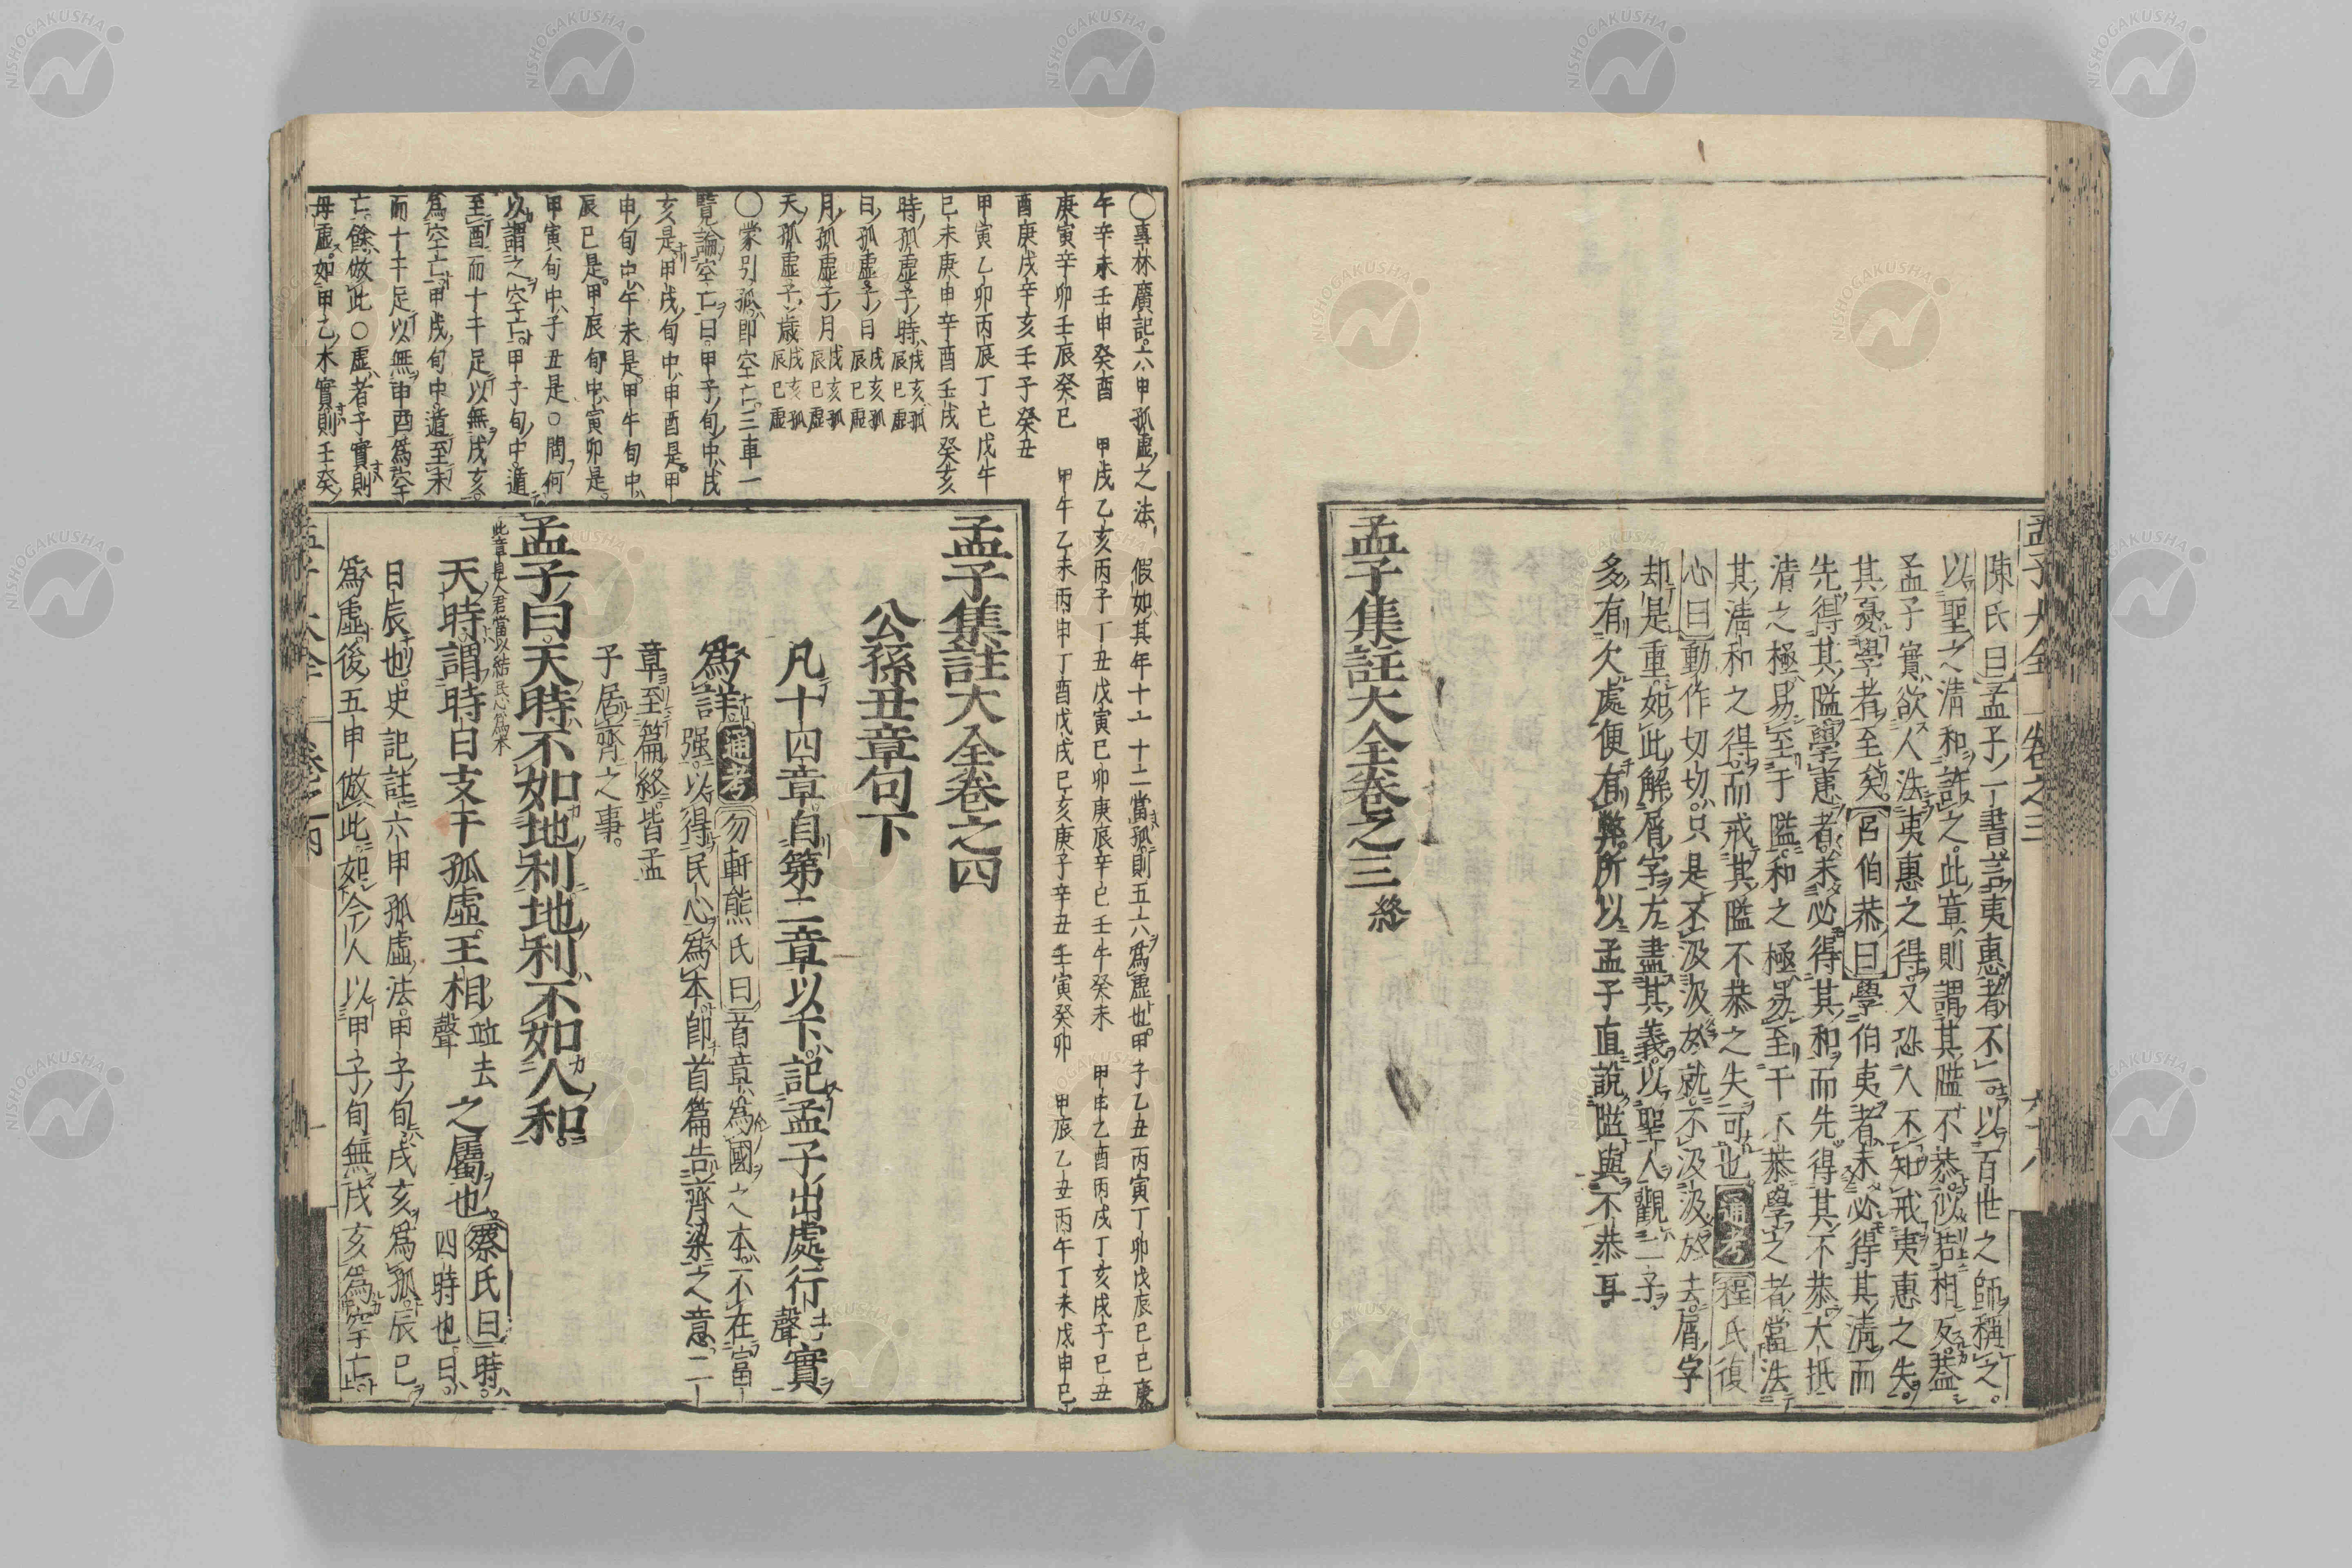 孟子大全
卷之三
六十八
陳氏曰孟子一書言夷惠者不一以百世之師稱之
以聖之清和許之此章則謂其隘不恭似若相反蓋
孟子實欲人法夷惠之得又恐人不知戒夷惠之失
其憂學者至矣呂伯恭曰學伯夷者未必得其清而
先得其隘學惠者未必得其和而先得其不恭大抵
清之極易至于隘和之極易至于不恭學之者當法
其清和之得而戒其隘不恭之失可也通考程氏復
心曰動作切切只是不汲汲於就不汲汲於去屑字
却是重如此解屑字方盡其義以聖人觀二子
多有欠處便有弊所以孟子直說隘與不恭耳
孟子集註大全卷之三終
○事林廣記六甲孤虛之法假如其年十一十二當孤則五六爲虛也甲子乙丑丙寅丁卯戊辰己巳庚
午辛未壬申癸酉 甲戌乙亥丙子丁丑戊寅己卯庚辰辛巳壬午癸未 甲申乙酉丙戌丁亥戊子己丑
庚寅辛卯壬辰癸巳 甲午乙未丙申丁酉戊戌己亥庚子辛丑壬寅癸卯 甲辰乙丑丙午丁未戊申己
酉庚戌辛亥壬子癸丑
甲寅乙卯丙辰丁巳戊午
己未庚申辛酉壬戌癸亥
時孤虛子時戌亥孤辰巳虛
日孤虛子日戌亥孤辰巳虛
月孤虛子月戌亥孤辰巳虛
天孤虛子歲戌亥孤辰巳虛
○蒙引孤即空亡三車一
覽論空亡曰甲子旬中戌
亥是甲戌旬中申酉是甲
申旬中午未是甲午旬中
辰巳是甲辰旬中寅卯是
甲寅旬中子丑是○問何
以謂之空亡甲子旬中遁
至酉而十干足以無戌亥
爲空亡甲戌旬中遁至未
而十干足以無申酉爲空
亡餘倣此○虛者子實則
母虛如甲乙木實則壬癸
孟子集註大全卷之四
公孫丑章句下
凡十四章自第二章以下記孟子出處行去聲實
爲詳通考勿軒熊氏曰首章爲國之本不在富
强以得民心爲本卽首篇告齊梁之意二
章至篇終皆孟
子居齊之事
孟子曰天時不如地利地利不如人和
此章見人君當以結民心爲本
天時謂時日支干孤虛王相並去聲之屬也蔡氏曰時
四時也日
日辰也史記註六甲孤虛法甲子旬戌亥爲孤辰巳
爲虛後五甲倣此如今人以甲子旬無戌亥爲空亡
孟子大全
卷之四
一